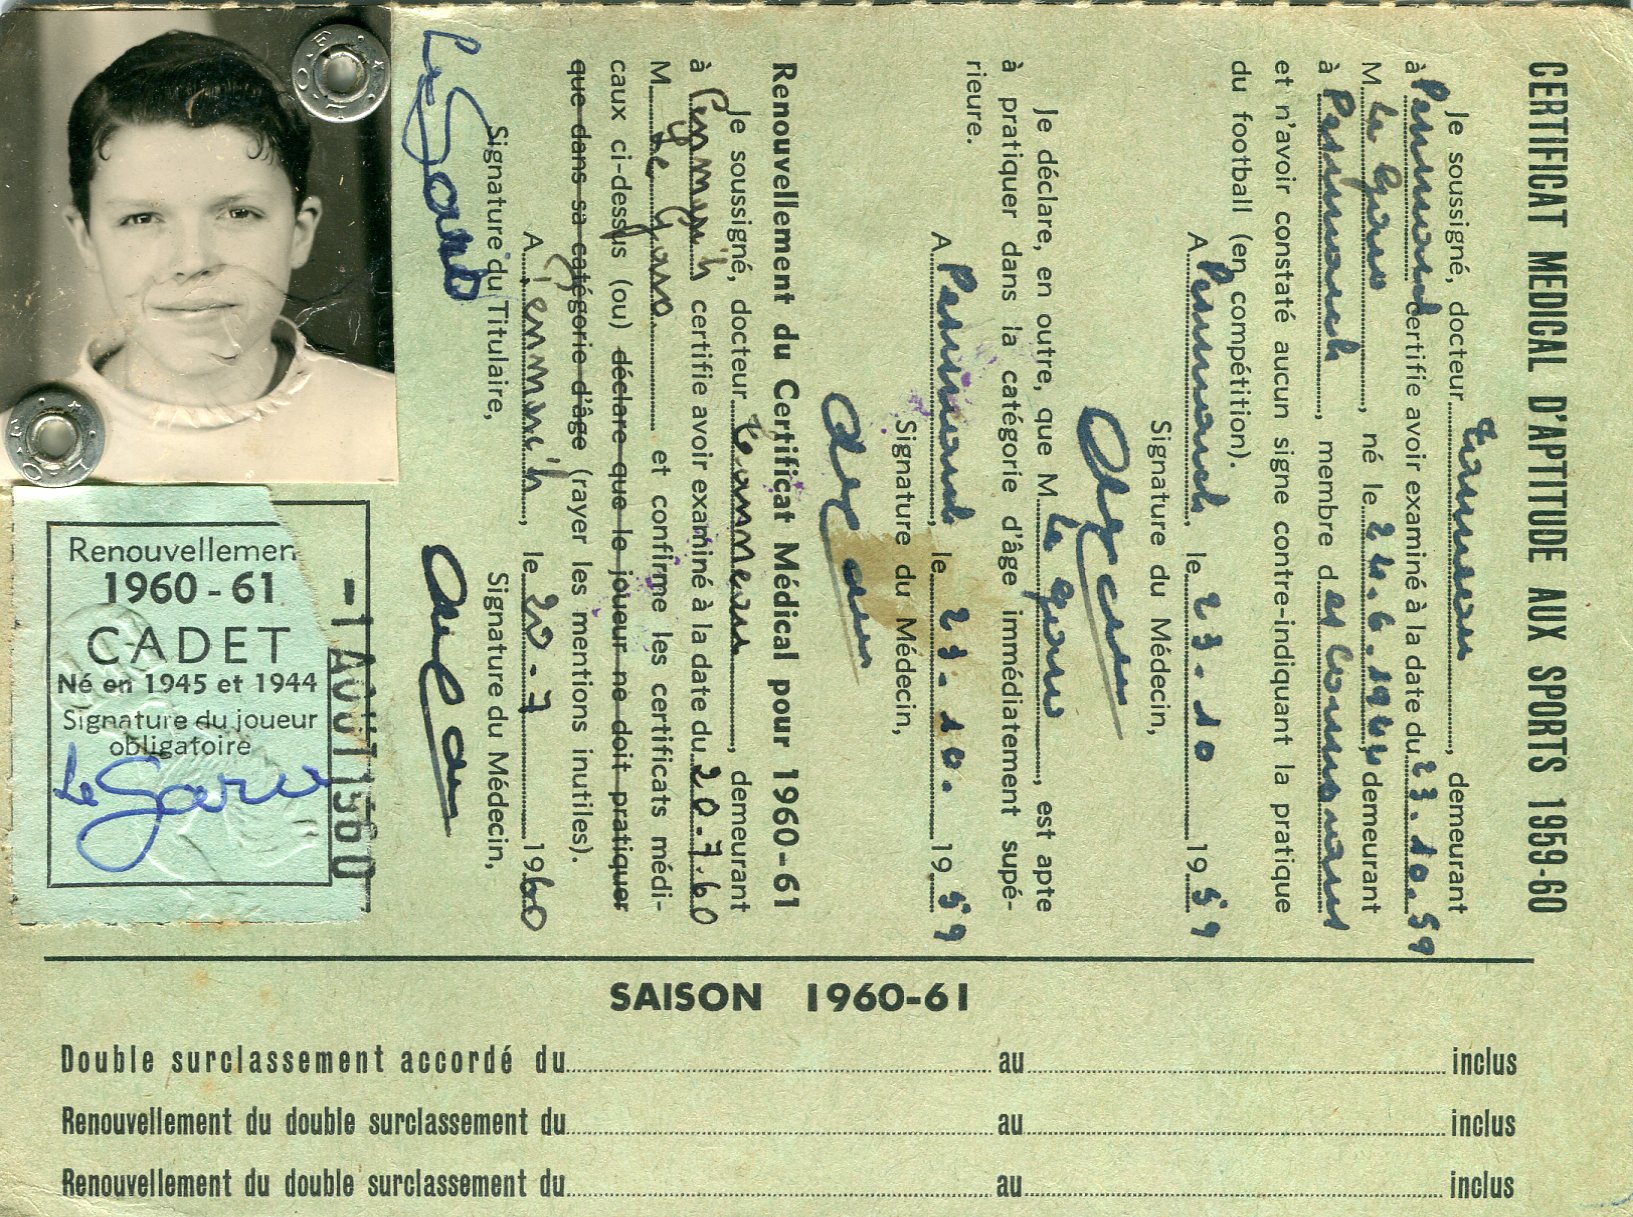 CERTIFICAT MEDICAL D'APTITUDE AUX SPORTS 1959-60
Je soussigné, docteur, demeurant
à certifie avoir examiné à la date du 23.10.59
M. Le Garo, né le 24.6.1944, demeurant
à Penmarch, membre des
et n'avoir constaté aucun signe contre-indiquant la pratique
du football (en compétition).
A Penmarch, le 23.10 1959
Signature du Médecin,
Je déclare, en outre, que M. Le Garo, est apte
à pratiquer dans la catégorie d'âge immédiatement supé-
rieure.
A Penmarch, le 23.10. 1959
Signature du Médecin,
Renouvellement du Certificat Médical pour 1960-61
Je soussigné, docteur, demeurant
à Penmarc'h certifie avoir examiné à la date du 20.7.60
M. Le Garo et confirme les certificats médi-
caux ci-dessus (ou) déclare que le joueur ne doit pratiquer
que dans sa catégorie d'âge (rayer les mentions inutiles).
A Penmarc'h, le 20.7 1960
Signature du Titulaire, Signature du Médecin,
Le Garo
Renouvellemen
1960-61
CADET
Né en 1945 et 1944
Signature du joueur
obligatoire
Le Garo
-1 AOUT 1960
SAISON 1960-61
Double surclassement accordé du au inclus
Renouvellement du double surclassement du au inclus
Renouvellement du double surclassement du au inclus